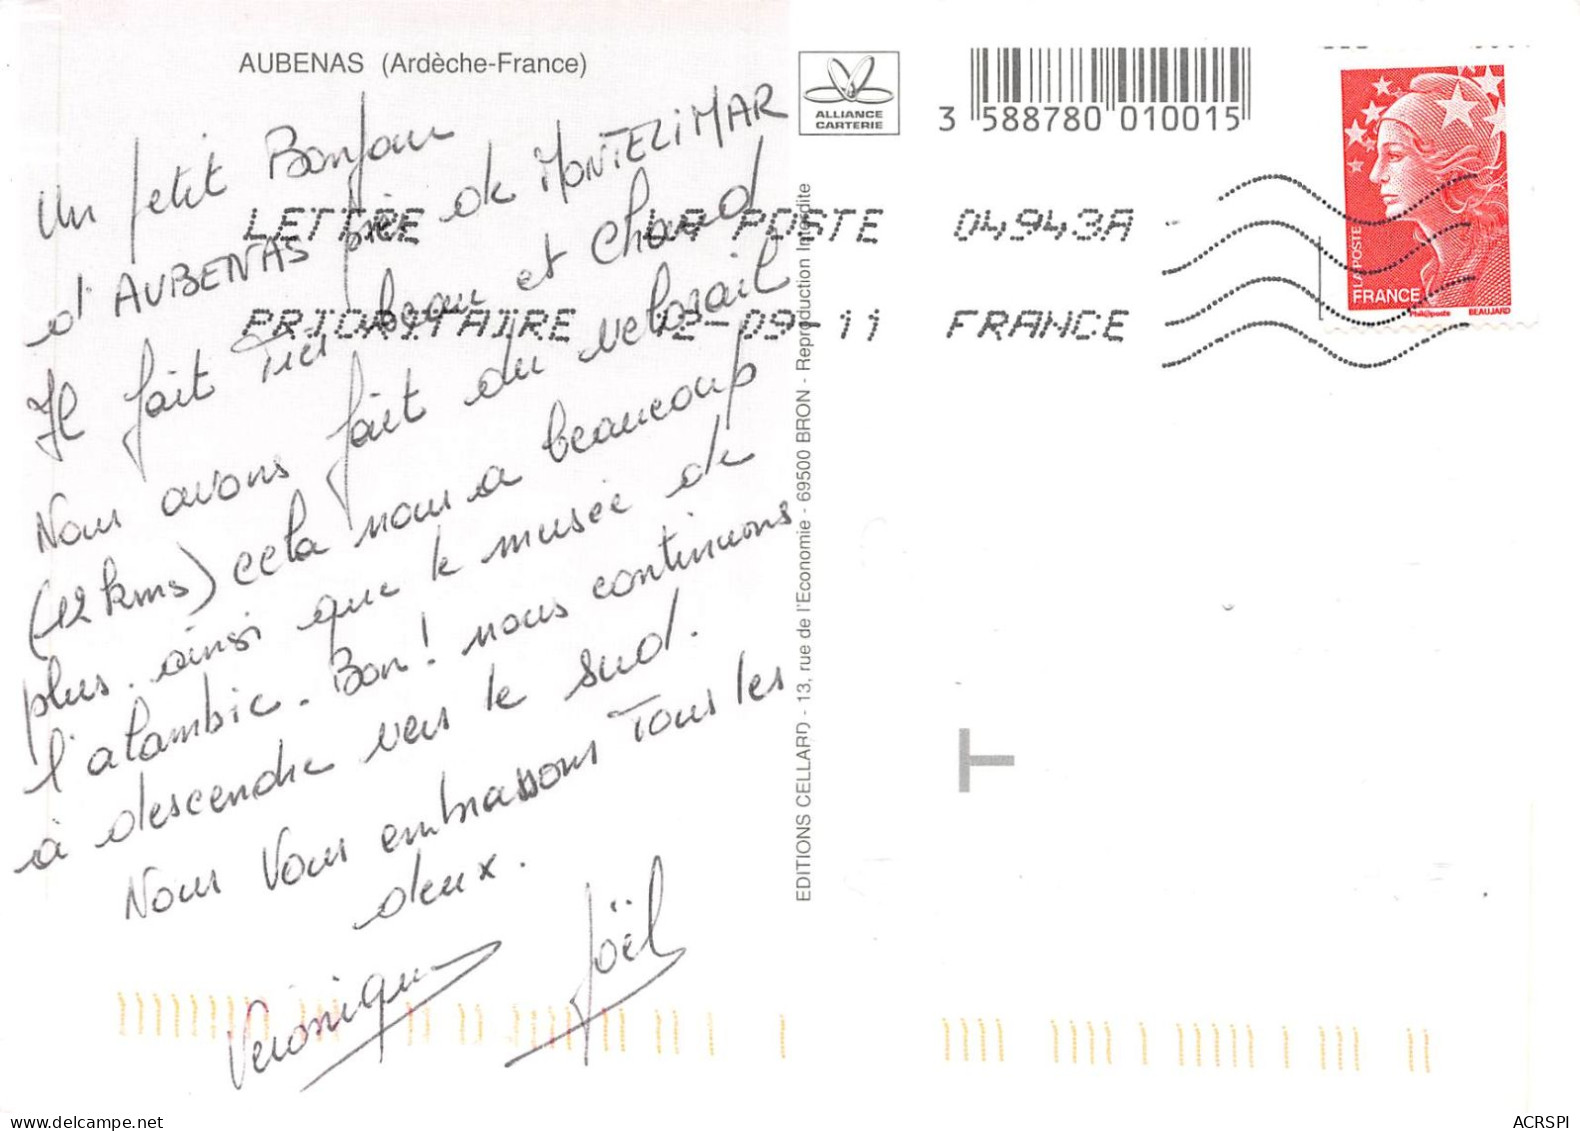 AUBENAS (Ardèche-France)
Un petit Bonjour
d'AUBENAS près de MONTELIMAR
Il fait Très beau et chaud
Nous avons fait du velorail
(12 kms) cela nous a beaucoup
plus. ainsi que le musée de
l'alambic. Bon! nous continuons
à descendre vers le sud.
Nous Vous embrassons Tous les
deux.
Veronique Joël
EDITIONS CELLARD - 13, rue de l'Economie - 69500 BRON - Reproduction Interdite
ALLIANCE
CARTERIE
3 588780 010015
LETTRE LA POSTE 04943A
PRIORITAIRE 12-09-11 FRANCE
LA POSTE
FRANCE
Phil@poste
BEAUJARD
T
ACRSPI